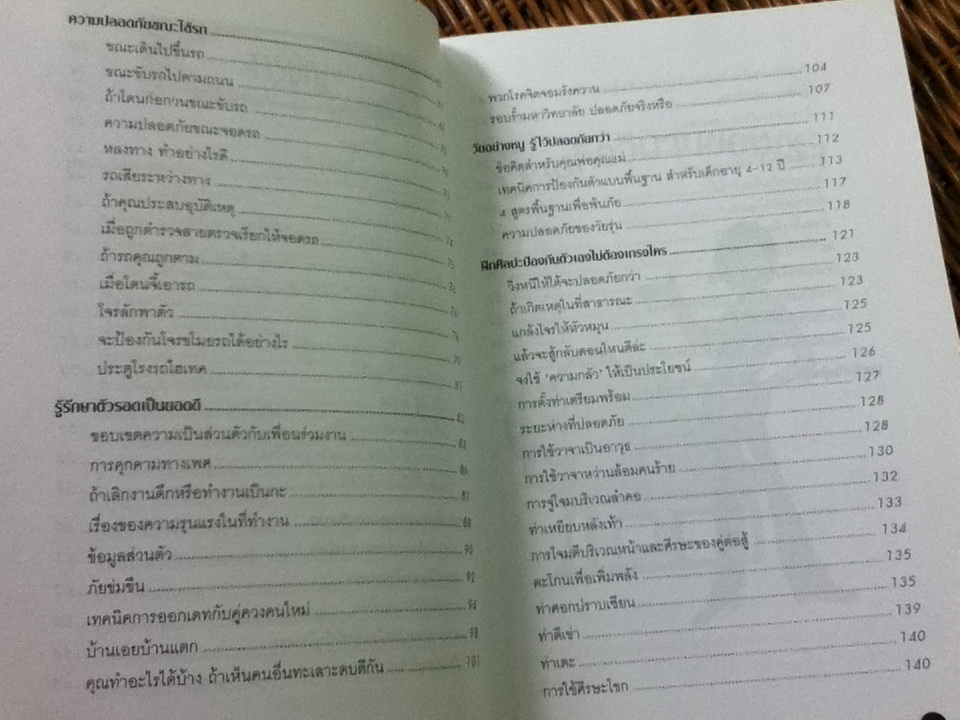 ความปลอดภัยขณะใช้รถ
ขณะเดินไปขึ้นรถ
ขณะขับรถไปตามถนน
ถ้าโดนก่อกวนขณะขับรถ
ความปลอดภัยขณะจอดรถ
หลงทาง ทำอย่างไรดี
รถเสียระหว่างทาง
ถ้าคุณประสบอุบัติเหตุ
เมื่อถูกตำรวจสายตรวจเรียกให้จอดรถ
ถ้ารถคุณถูกตาม
เมื่อโดนจี้เอารถ
โจรลักพาตัว
จะป้องกันโจรขโมยรถได้อย่างไร
ประตูโรงรถไฮเทค
รู้รักษาตัวรอดเป็นยอดดี
ขอบเขตความเป็นส่วนตัวกับเพื่อนร่วมงาน
การคุกคามทางเพศ
ถ้าเลิกงานดึกหรือทำงานเป็นกะ
เรื่องของความรุนแรงในที่ทำงาน
ข้อมูลส่วนตัว 90
ภัยข่มขืน 92
เทคนิคการออกเดทกับคู่ควงคนใหม่ 94
บ้านเอยบ้านแตก
คุณทำอะไรได้บ้าง ถ้าเห็นคนอื่นทะเลาะตบตีกัน 101
พวกโรคจิตจอมรังควาน 104
รอบรั้วมหาวิทยาลัย ปลอดภัยจริงหรือ 107
วัยอย่างหนู รู้ไว้ปลอดภัยกว่า 111
ข้อคิดสำหรับคุณพ่อคุณแม่ 112
เทคนิคการป้องกันตัวแบบพื้นฐาน สำหรับเด็กอายุ 4-12 ปี 113
สูตรพื้นฐานเพื่อพ้นภัย 117
ความปลอดภัยของวัยรุ่น 118
ฝึกศิลปะป้องกันตัวเองไม่ต้องเกรงใคร 121
วิ่งหนีให้ได้จะปลอดภัยกว่า 123
ถ้าเกิดเหตุในที่สาธารณะ 123
แกล้งโจรให้หัวหมุน 125
แล้วจะสู้กลับตอนไหนดีล่ะ 125
จงใช้ 'ความกลัว' ให้เป็นประโยชน์ 126
การตั้งท่าเตรียมพร้อม 127
ระยะห่างที่ปลอดภัย 128
การใช้วาจาเป็นอาวุธ 128
การใช้วาจาหว่านล้อมคนร้าย 130
การจู่โจมบริเวณลำคอ 132
ท่าเหยียบหลังเท้า 133
การโจมตีบริเวณหน้าและศีรษะของคู่ต่อสู้ 134
ตะโกนเพื่อเพิ่มพลัง 135
ท่าศอกปราบเซียน 135
ท่าตีเข่า 139
ท่าเตะ 140
การใช้ศีรษะโขก 140